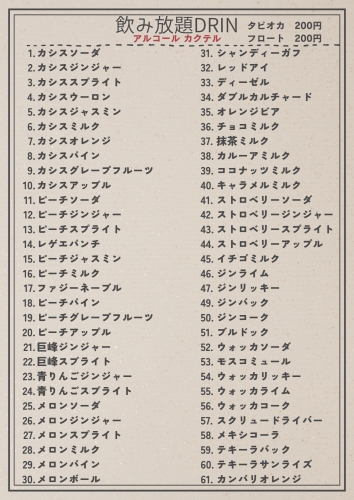 飲み放題DRIN
タピオカ 200円
アルコール カクテル
フロート 200円
1. カシスソーダ
2. カシスジンジャー
3. カシススプライト
4. カシスウーロン
5. カシスジャスミン
6. カシスミルク
7. カシスオレンジ
8. カシスパイン
9. カシスグレープフルーツ
10. カシスアップル
11. ピーチソーダ
12. ピーチジンジャー
13. ピーチスプライト
14. レゲエパンチ
15. ピーチジャスミン
16. ピーチミルク
17. ファジーネーブル
18. ピーチパイン
19. ピーチグレープフルーツ
20. ピーチアップル
21. 巨峰ジンジャー
22. 巨峰スプライト
23. 青りんごジンジャー
24. 青りんごスプライト
25. メロンソーダ
26. メロンジンジャー
27. メロンスプライト
28. メロンミルク
29. メロンパイン
30. メロンボール
31. シャンディーガフ
32. レッドアイ
33. ディーゼル
34. ダブルカルチャード
35. オレンジビア
36. チョコミルク
37. 抹茶ミルク
38. カルーアミルク
39. ココナッツミルク
40. キャラメルミルク
41. ストロベリーソーダ
42. ストロベリージンジャー
43. ストロベリースプライト
44. ストロベリーアップル
45. イチゴミルク
46. ジンライム
47. ジンリッキー
49. ジンバック
50. ジンコーク
51. ブルドック
52. ウォッカソーダ
53. モスコミュール
54. ウォッカリッキー
55. ウォッカライム
56. ウォッカコーク
57. スクリュードライバー
58. メキシコーラ
59. テキーラバック
60. テキーラサンライズ
61. カンパリオレンジ